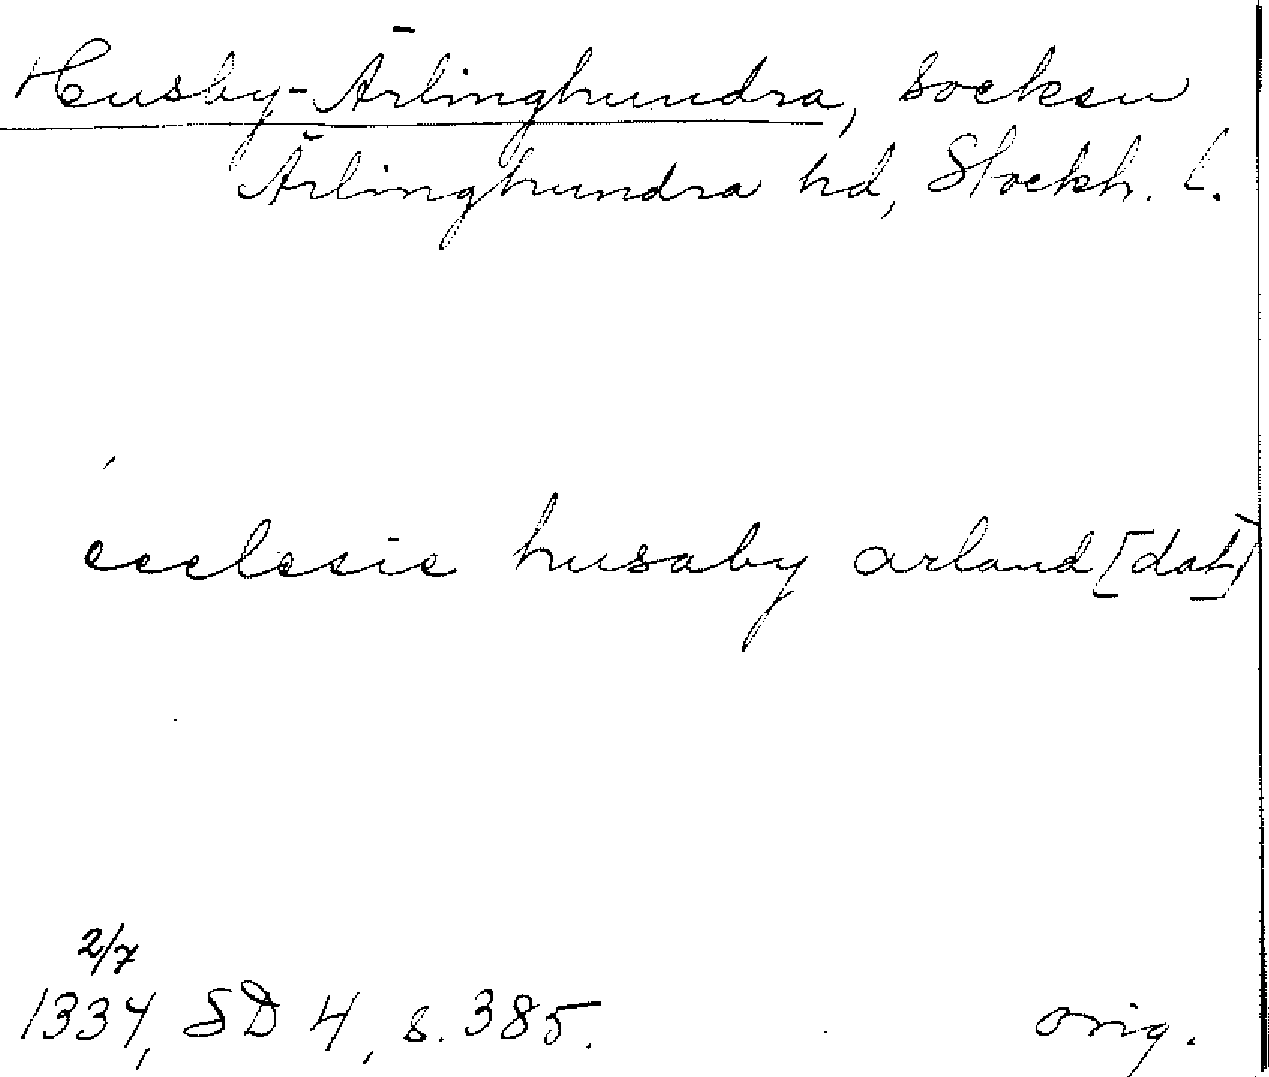 Husby-Ärlinghundra, socken
Ärlinghundra hd, Stockh. l.
ecclesie husaby arland [dat]
2/7
1334, SD 4, s. 385. orig.